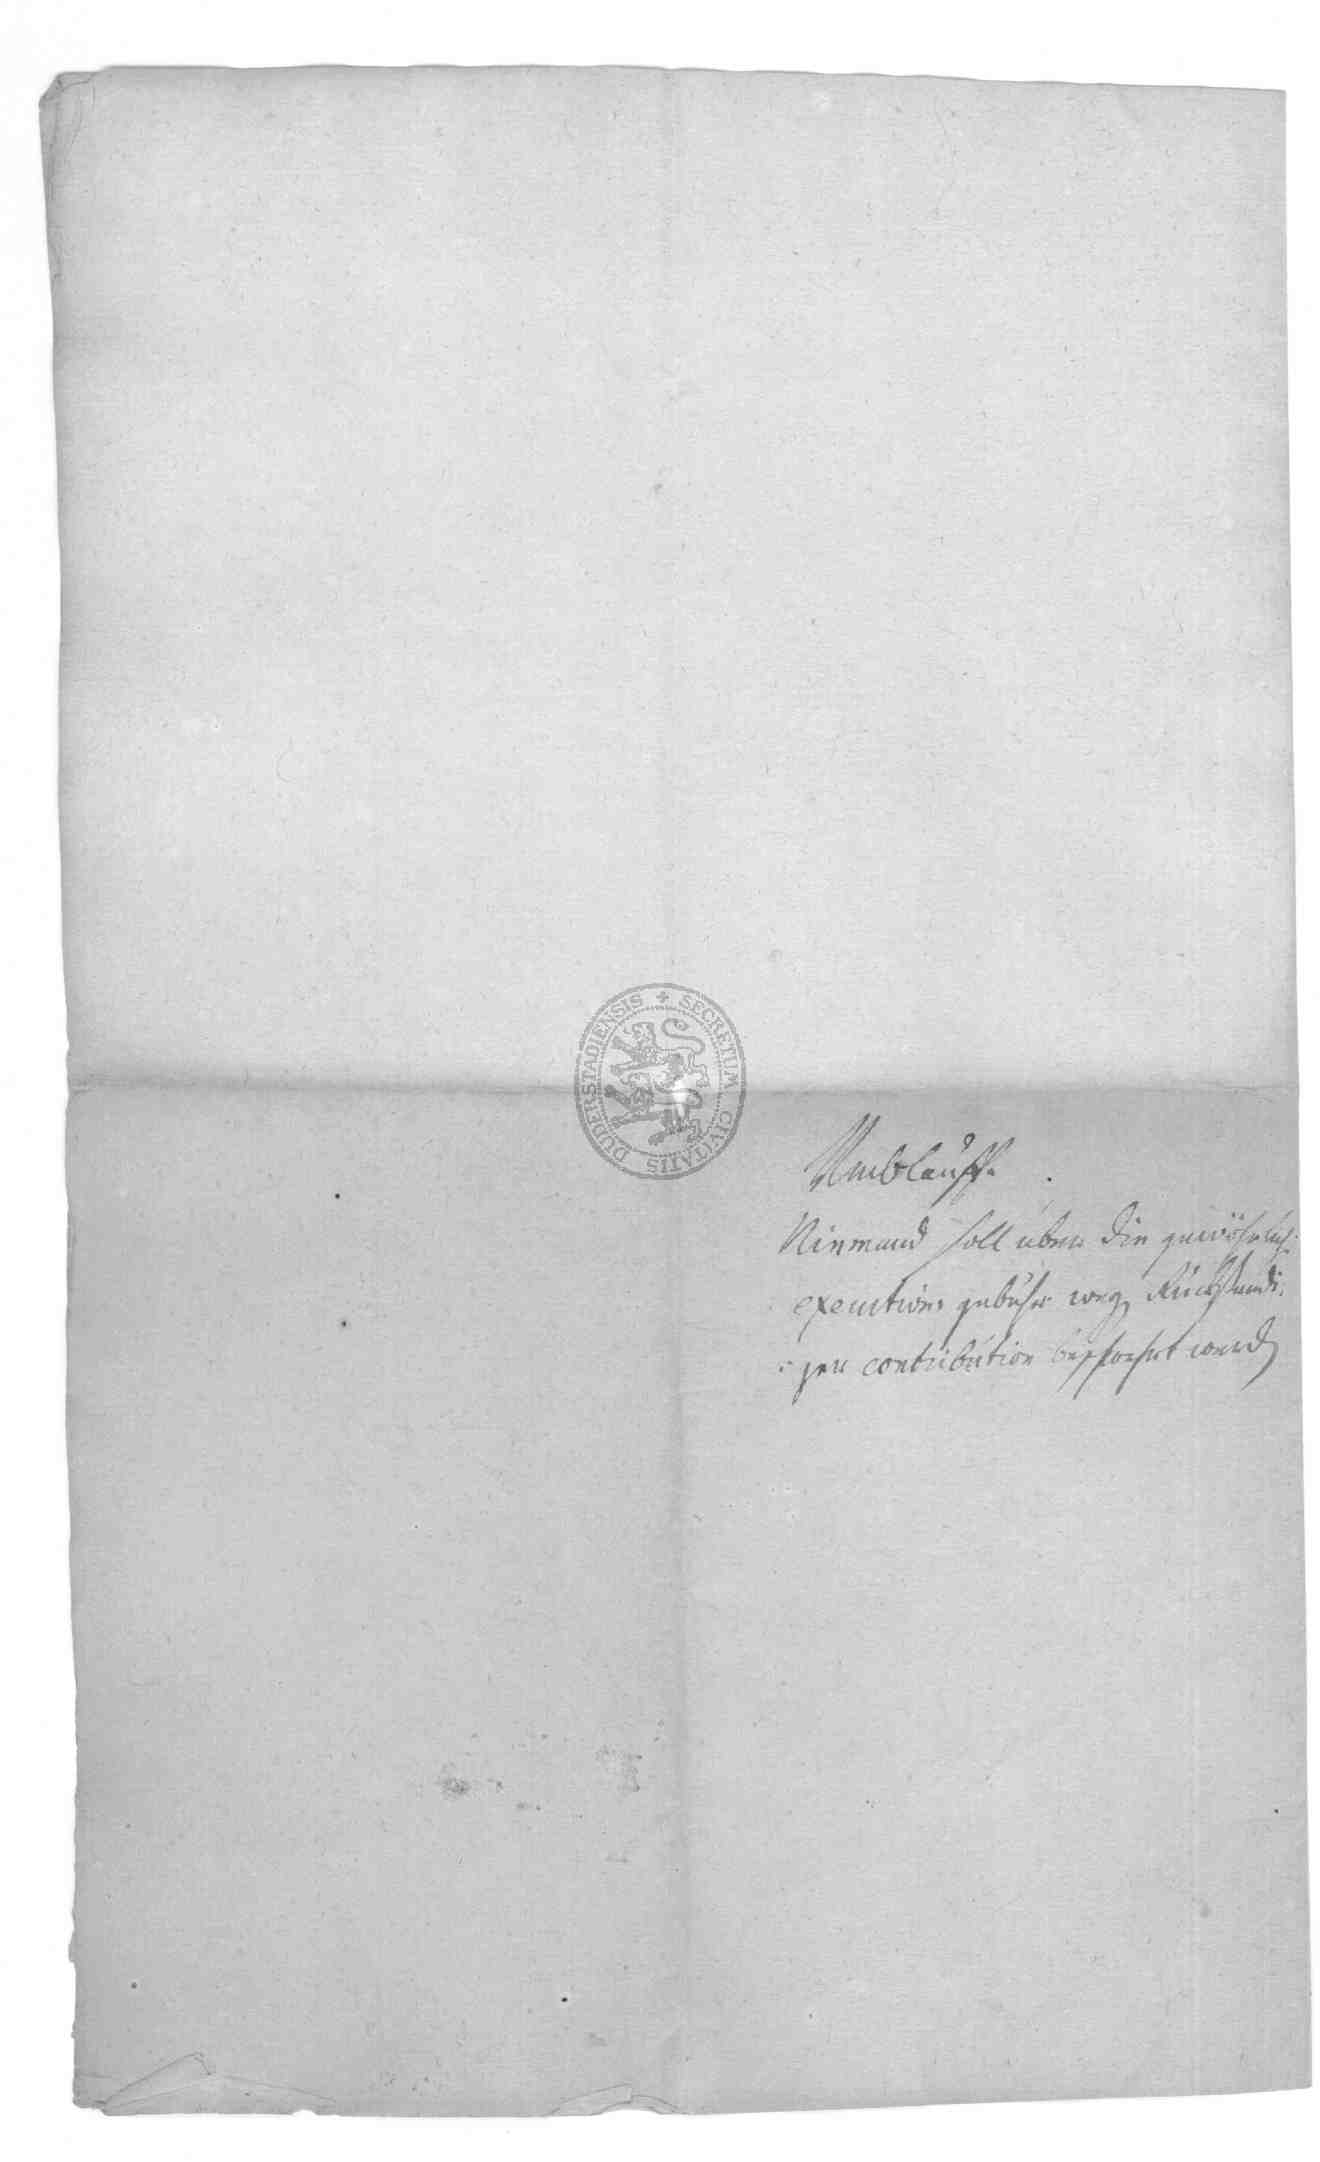 SECRETUM CIVITATIS DUDERSTADIENSIS
Umblauff
Niemand soll über die gewöhnlich:
executions gebühr weg Rückständi:
gen contribution beschwehrt werd